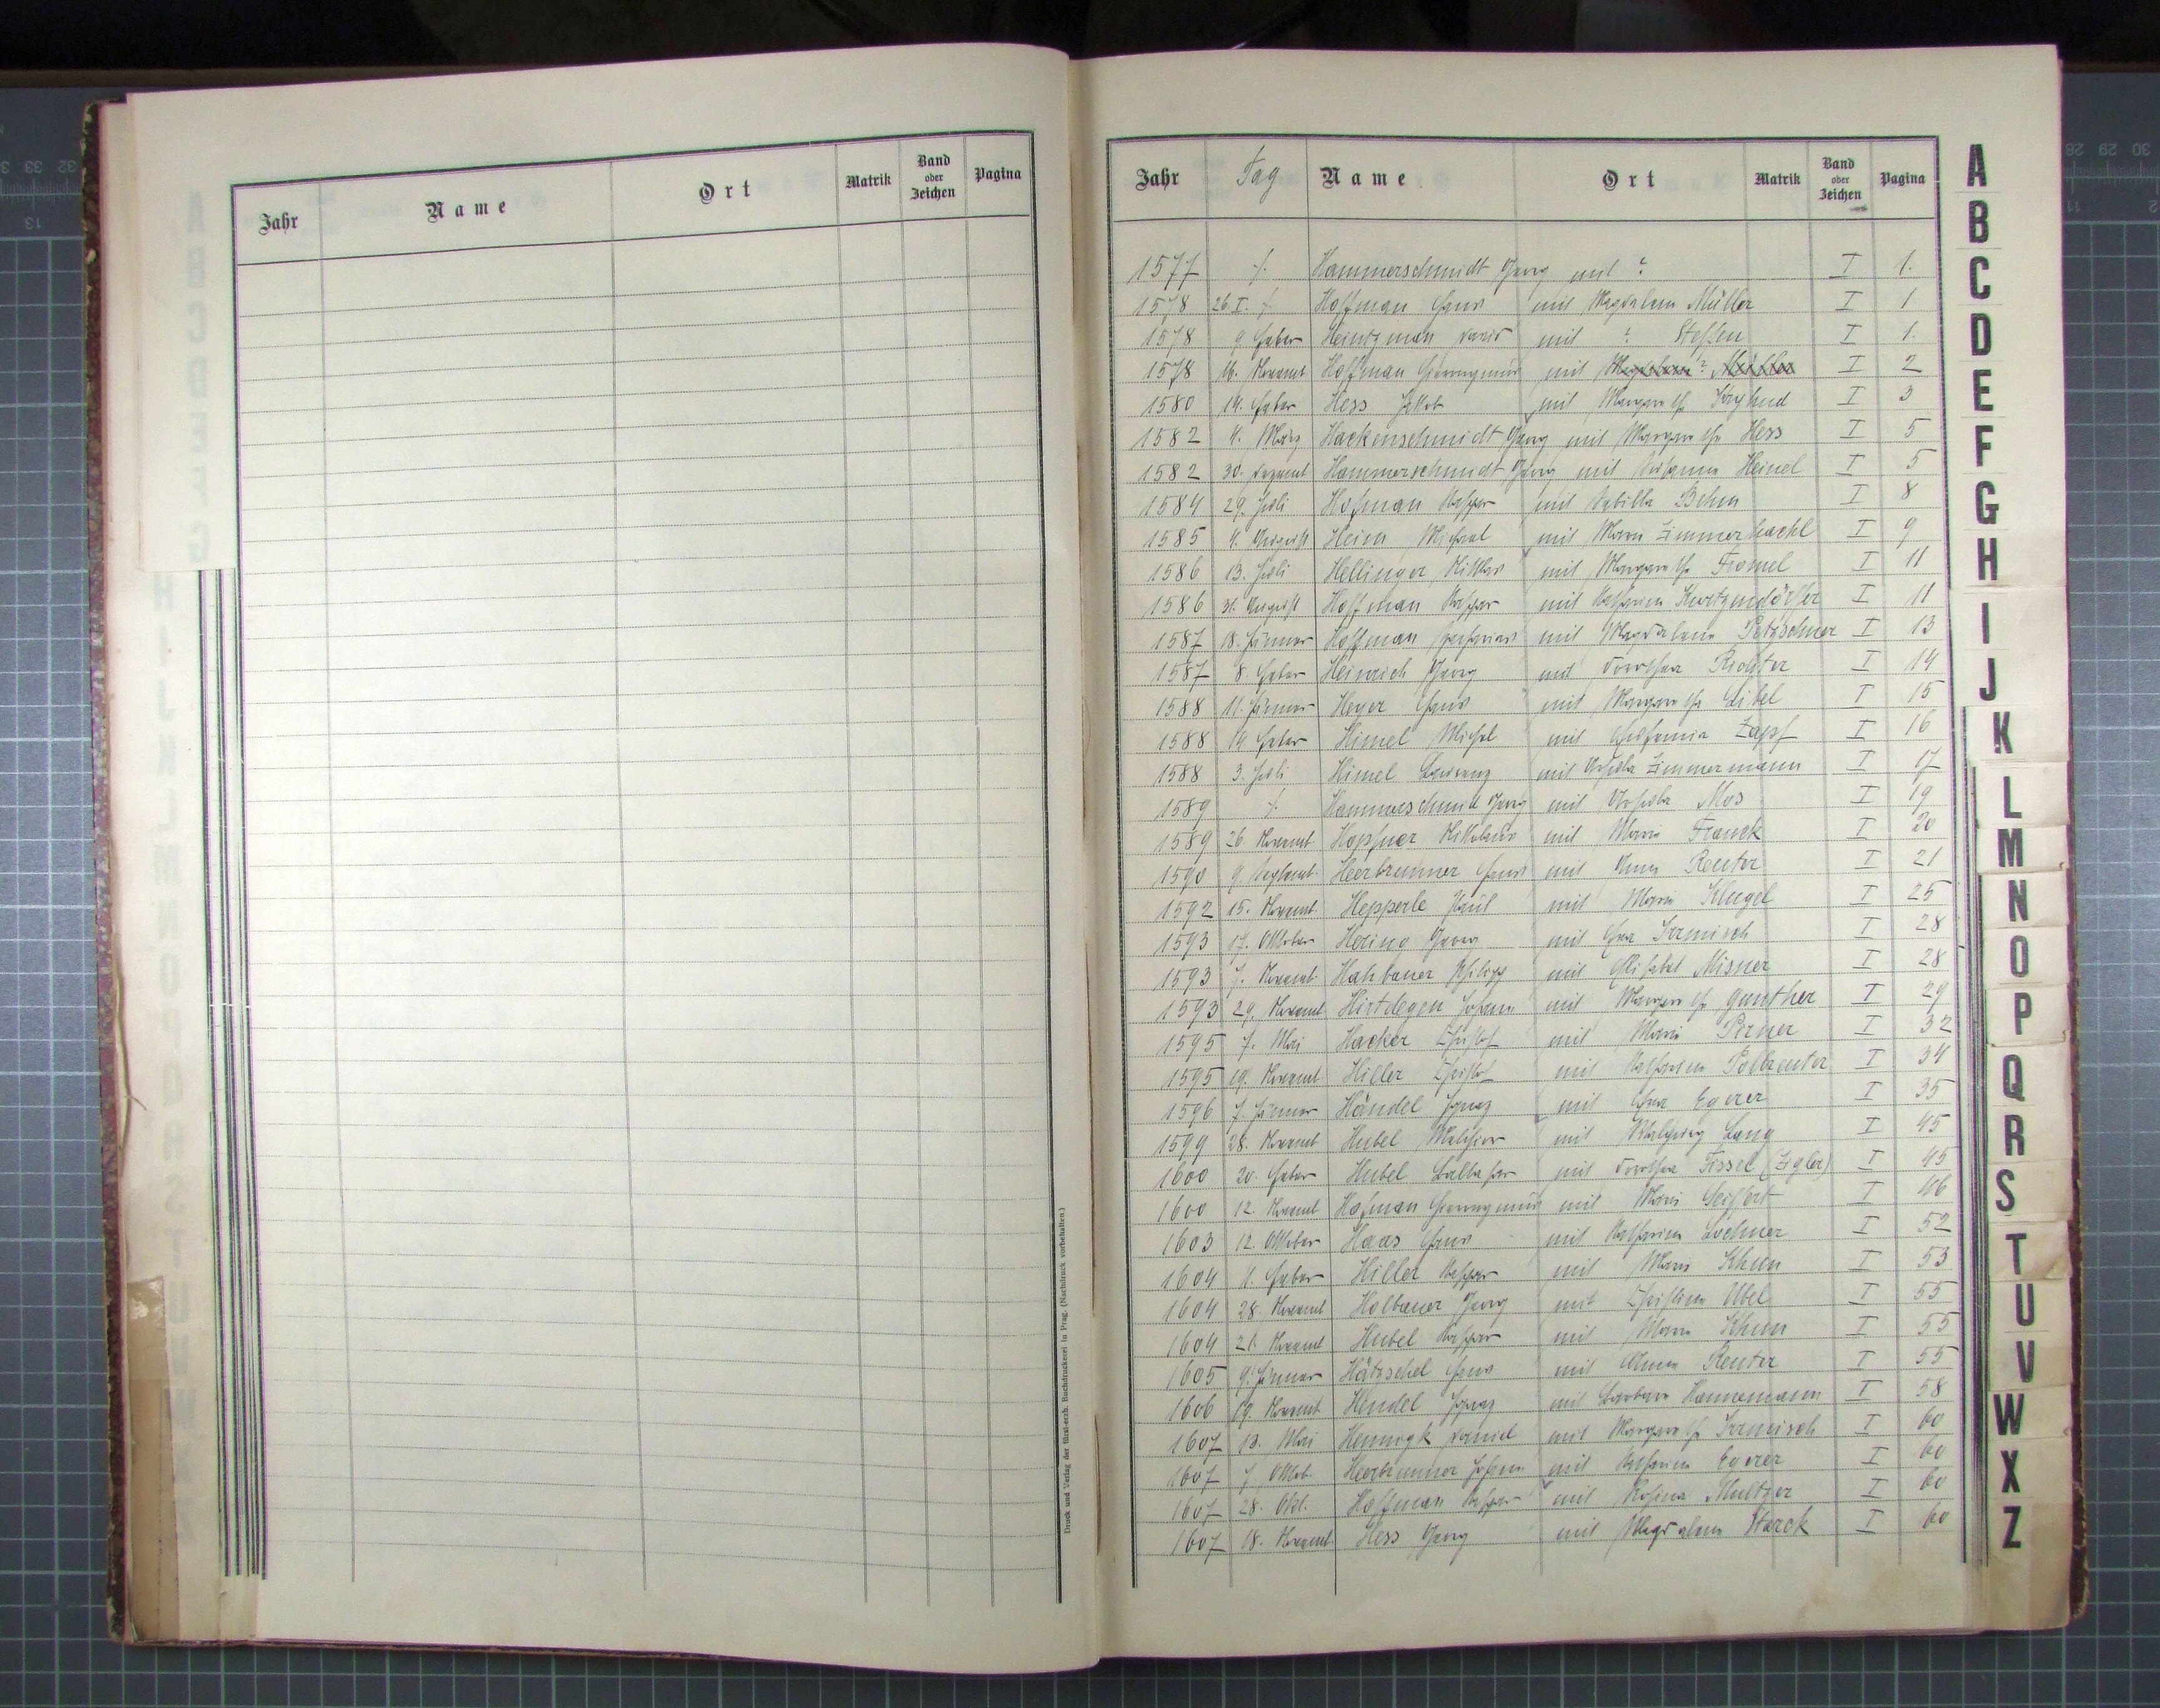 Jahr Name Ort Matrik Band oder Zeichen Pagina
Druck und Verlag der fürst-erzb. Buchdruckerei in Prag. (Nachdruck vorbehalten.)
Jahr Tag Name Ort Matrik Band oder Zeichen Pagina
1577 /. Hammerschmidt Georg mit ? I 1.
1578 26. I. /. Hoffman Hans mit Magdalena Müller I 1
1578 9. Feber Heintzman David mit ? Steffen I 1.
1578 16. Novemb Hoffman Hieronymus mit I 2
1580 14. Feber Hess Jakob mit Margareth I 3
1582 4. März Hackenschmidt Georg mit Margareth Hess I 5
1582 30. Dezemb Hammerschmidt Georg mit Susanna Heinel I 5
1584 29. Juli Hofman Kaspar mit Sabilla Behm I 8
1585 4. August Heim Michael mit Maria Zimmerhackl I 9
1586 13. Juli Hellinger Niklas mit Margareth Fromel I 11
1586 31. August Hoffman Kaspar mit Katharina Kurtzendörfer I 11
1587 18. Jänner Hoffman Zacharias mit Magdalena Petzschner I 13
1587 8. Feber Heinrich Georg mit Dorothea Richter I 14
1588 11. Jänner Heyer Hans mit Margareth Libel I 15
1588 14. Feber Himel Michel mit Eufemia Zapf I 16
1588 3. Juli Himel Lorenz mit Ursula Zimmermann I 17
1589 /. Hammerschmid Georg mit Ursula Mos I 19
1589 26. Novemb Hopfner Nikolaus mit Maria Franck I 20
1590 9. Septemb. Heerbrunner Hans mit Anna Reuter I 21
1592 15. Novemb. Hepperle Paul mit Maria Klugel I 25
1593 17. Oktober Hering Georg mit Eva Irmisch I 28
1593 7. Novemb. Hahbauer Philipp mit Elisabet Misner I 28
1593 29. Novemb Hirtdegen Johann mit Margareth Gunther I 29
1595 7. Mai Hacker Christof mit Maria Perner I 32
1595 19. Novemb Hiller Christof mit Katharina Pollreuter I 34
1596 7. Jänner Händel Ignaz mit Eva Egerer I 35
1599 28. Novemb Hubel Melchior mit Walpurg Lang I 45
1600 20. Feber Hubel Balthasar mit Dorothea Fissel (Zigler) I 45
1600 12. Novemb Hofman Hieronymus mit Maria Seifert I 46
1603 12. Oktober Haas Hans mit Katharina Lochner I 52
1604 4. Feber Hiller Kaspar mit Maria Khun I 53
1604 28. Novemb Holbauer Georg mit Christina Ubel I 55
1604 21. Novemb Hubel Kaspar mit Maria Khun I 55
1605 9. Jänner Hätzschel Hans mit Anna Reuter I 55
1606 19. Novemb Hendel Ignaz mit Barbara Hannemann I 58
1607 13. Mai Hennigk Daniel mit Margareth Irmisch I 60
1607 7. Oktob. Heerbrunner Johann mit Katharina Egerer I 60
1607 28. Okt. Hoffman Kaspar mit Rosina Multzer I 60
1607 18. Novemb. Hess Georg mit Magdalena Starck I 60
A
B
C
D
E
F
G
H
I
J
K
L
M
N
O
P
Q
R
S
T
U
V
W
X
Z